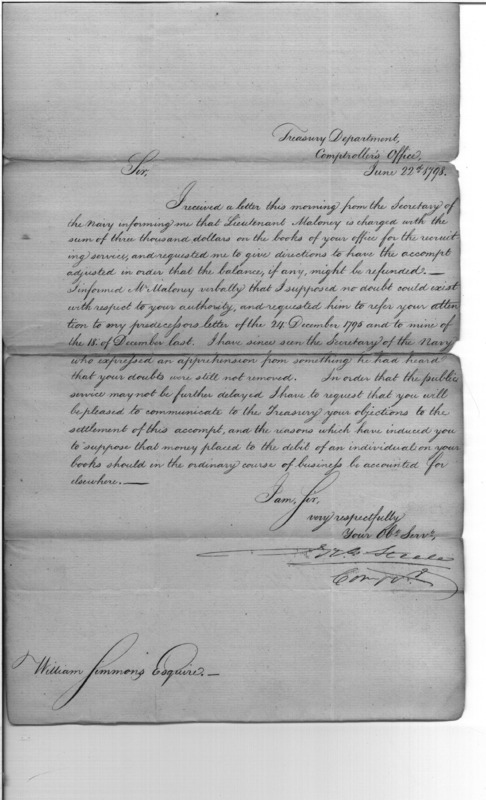 Treasury Department,
Comptroller's Office,
June 22d 1798.
Sir,
I received a letter this morning from the Secretary of
the Navy informing me that Lieutenant Maloney is charged with the
sum of three thousand dollars on the books of your office for the recruit
ing service, and requested me to give directions to have the accompt
adjusted in order that the balance, if any, might be refunded. —
I informed Mr Maloney verbally that I supposed no doubt could exist
with respect to your authority, and requested him to refer your atten
tion to my predecessors letter of the 24 December 1795 and to mine of
the 18. of December last. I have since seen the Secretary of the Navy
who expressed an apprehension from something he had heard
that your doubts were still not removed. In order that the public
service may not be further delayed I have to request that you will
be pleased to communicate to the Treasury your objections to the
settlement of this accompt, and the reasons which have induced you
to suppose that money placed to the debit of an individual on your
books should in the ordinary course of business be accounted for
elsewhere. —
I am, Sir,
very respectfully
Your Obt Servt,
Jno Steele
Compt
William Simmons Esquire. —